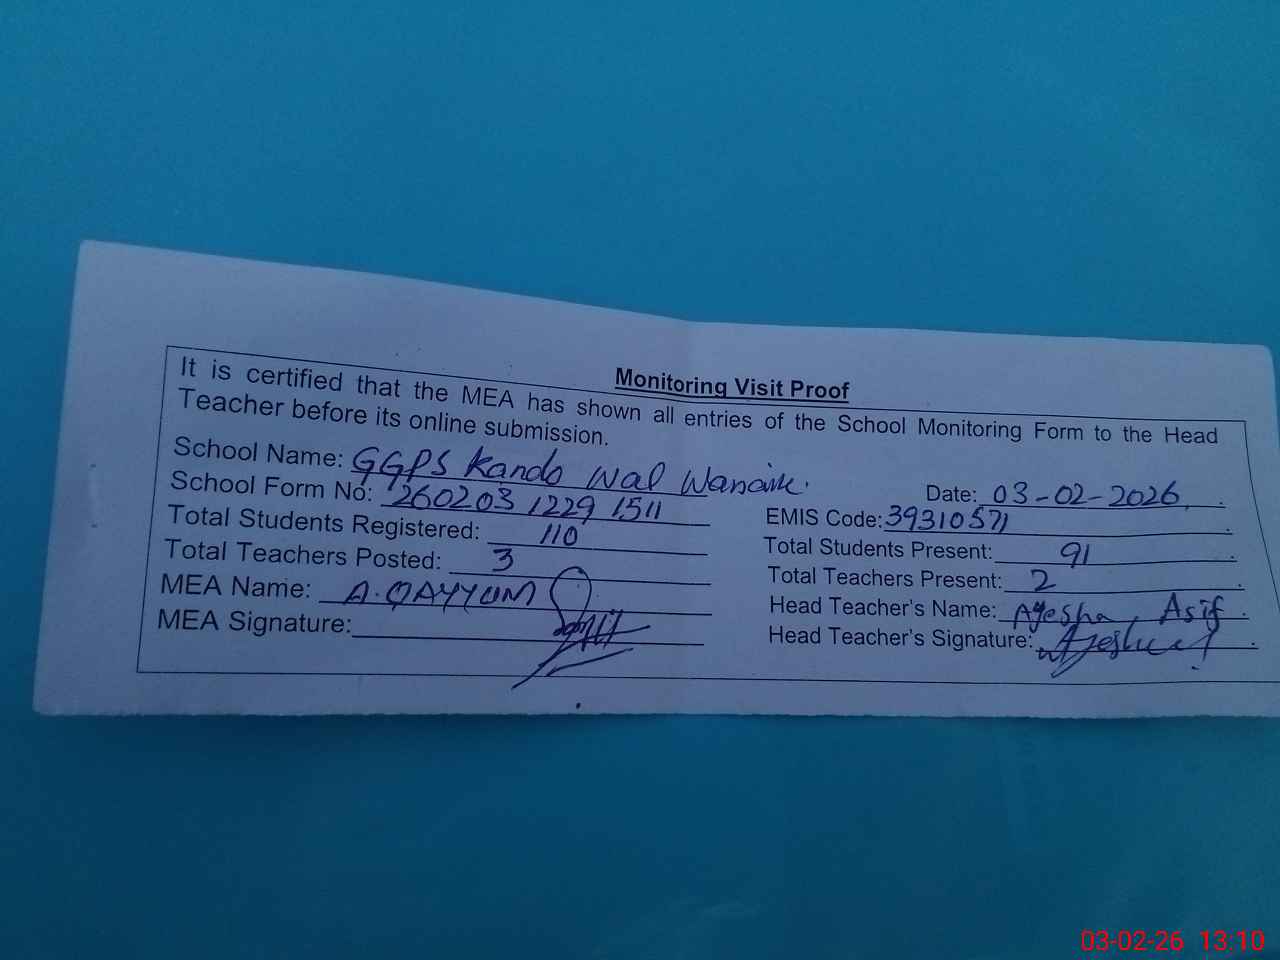 Monitoring Visit Proof
It is certified that the MEA has shown all entries of the School Monitoring Form to the Head
Teacher before its online submission.
School Name: GGPS Kando Wal Wanaik.
Date: 03-02-2026
School Form No: 260203 1229 1511
EMIS Code: 39310571
Total Students Registered: 110
Total Students Present: 91
Total Teachers Posted: 3
Total Teachers Present: 2
MEA Name: A.QAYYUM
Head Teacher's Name: Ayesha, Asif
MEA Signature:
Head Teacher's Signature:
03-02-26 13:10